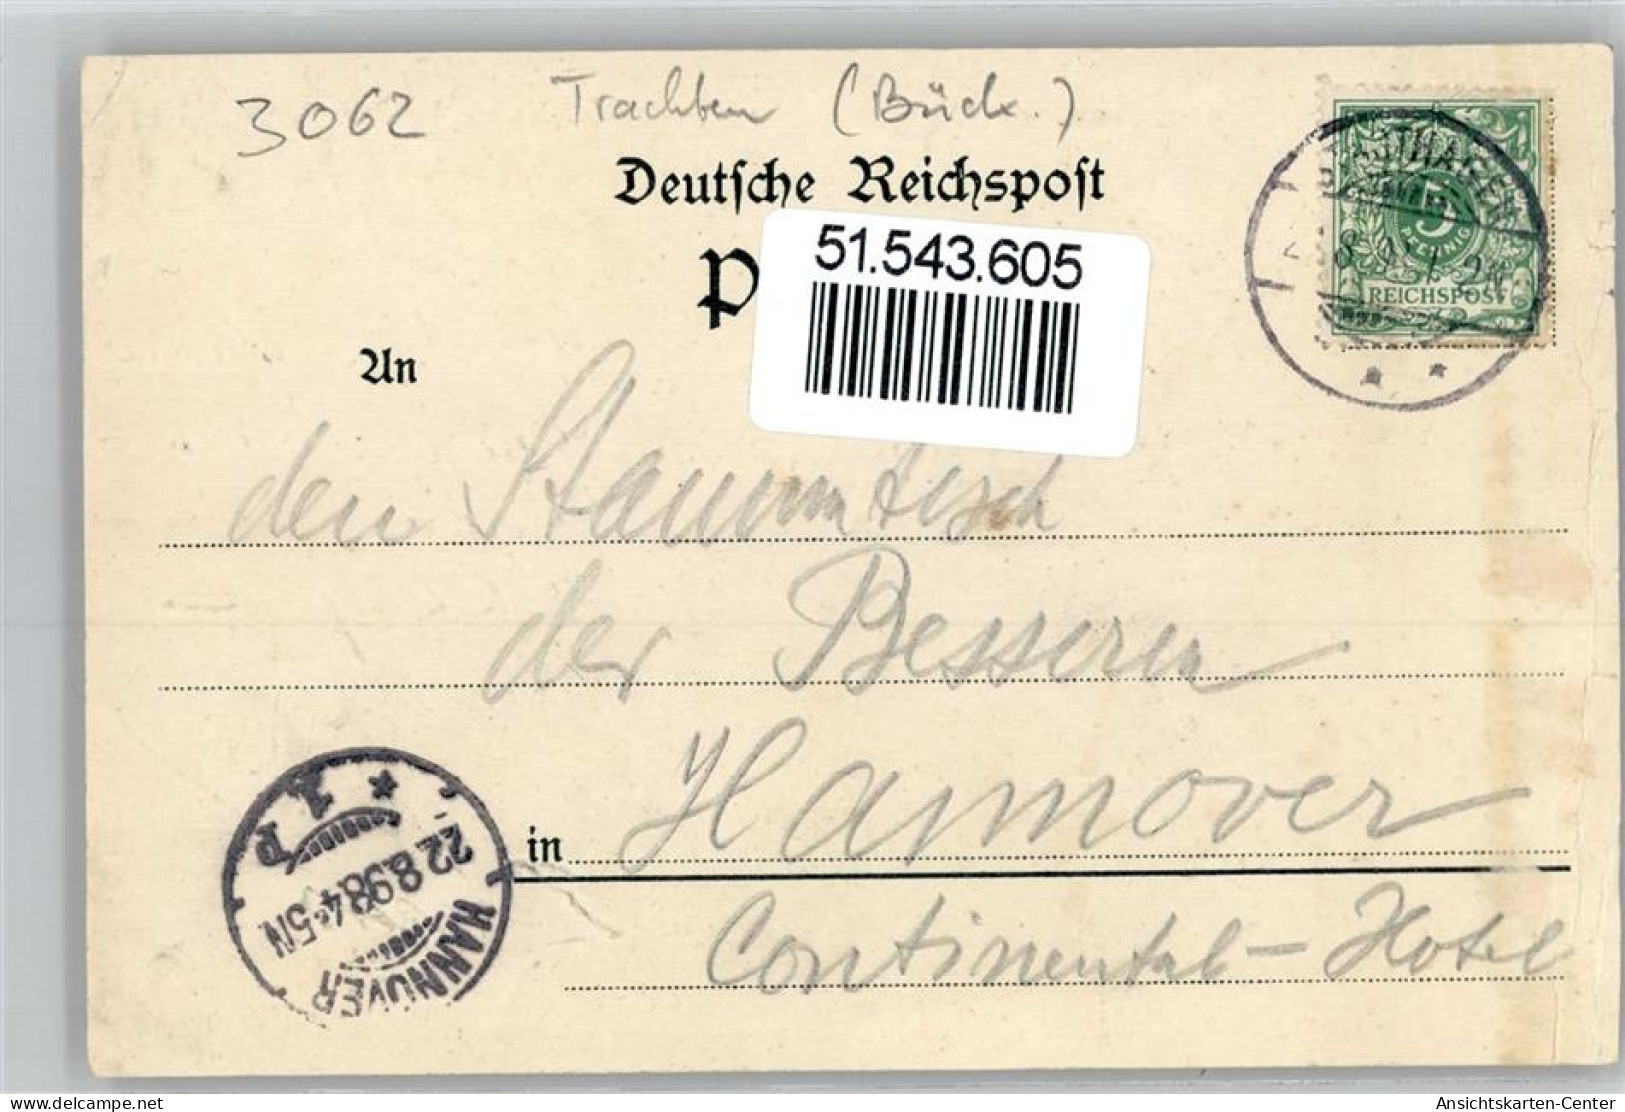 3062
Trachten (Bück.)
Deutsche Reichspost
P
51.543.605
An
5
PFENNIG
REICHSPOST
den Stammtisch
der Besseren
in Hannover
Continental-Hotel
HANNOVER
22.8.98.4-5N
* 1 P
hip
Ansichtskarten-Center